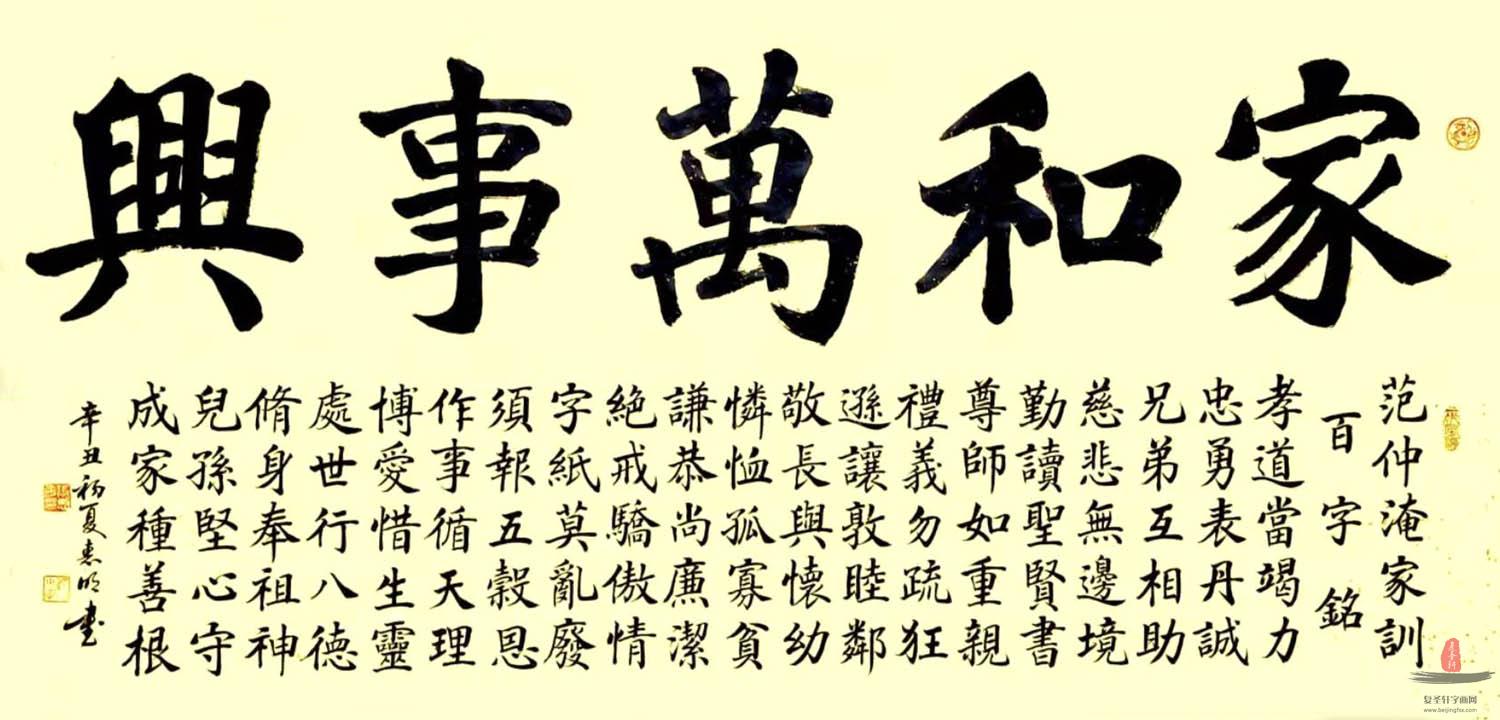 家和萬事興
范仲淹家訓
百字銘
孝道當竭力
忠勇表丹誠
兄弟互相助
慈悲無邊境
勤讀聖賢書
尊師如重親
禮義勿疏狂
遜讓敦睦鄰
敬長與懷幼
憐恤孤寡貧
謙恭尚廉潔
絕戒驕傲情
字紙莫亂廢
須報五穀恩
作事循天理
博愛惜生靈
處世行八德
脩身奉祖神
兒孫堅心守
成家種善根
辛丑初夏惠明書
复圣轩字画网
www.beijingfsx.com